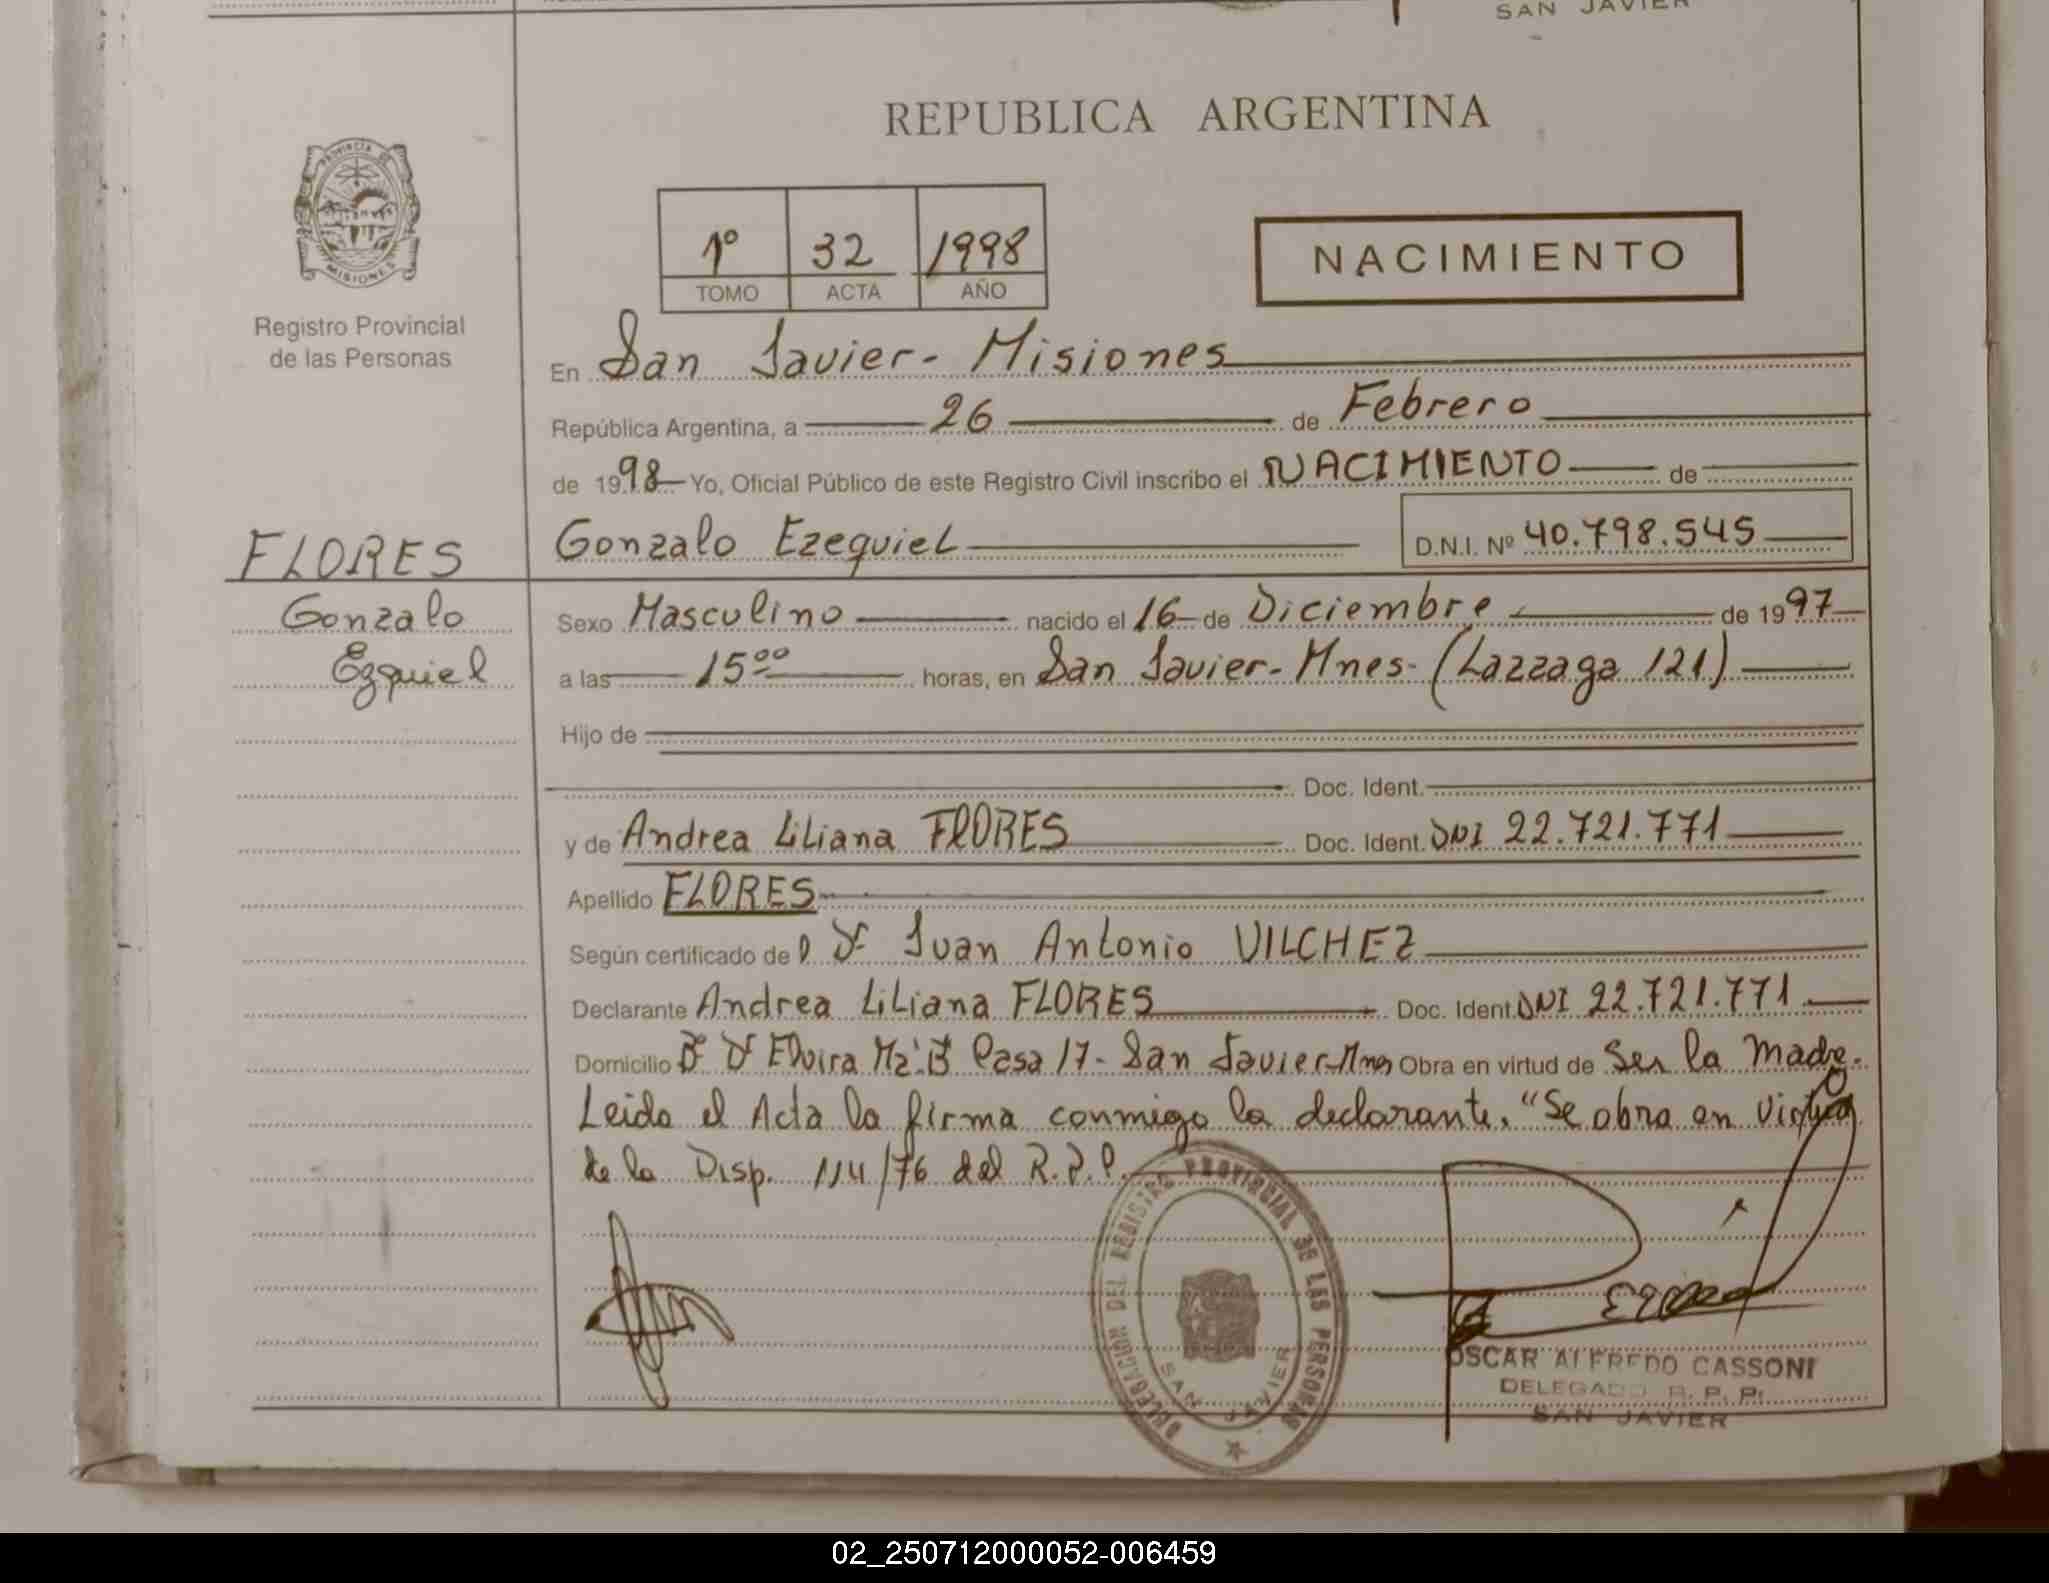 SAN JAVIER
REPUBLICA ARGENTINA
PROVINCIA DE
MISIONES
Registro Provincial
de las Personas
1º 32 1998
TOMO ACTA AÑO
NACIMIENTO
En San Javier - Misiones
República Argentina, a 26 de Febrero
de 1998 Yo, Oficial Público de este Registro Civil inscribo el NACIMIENTO de
FLORES Gonzalo Ezequiel D.N.I. Nº 40.798.545
Gonzalo Sexo Masculino nacido el 16 de Diciembre de 1997
Ezquiel a las 15⁰⁰ horas, en San Javier - Mnes - (Lazzaga 121)
Hijo de
Doc. Ident.
y de Andrea Liliana FLORES Doc. Ident. DNI 22.721.771
Apellido FLORES
Según certificado de Dr Juan Antonio VILCHEZ
Declarante Andrea Liliana FLORES Doc. Ident. DNI 22.721.771
Domicilio Bº Dª Elvira Mz: B Casa 17 - San Javier - Mnes Obra en virtud de Ser la Madre.
Leida el Acta la firma conmigo la declarante. "Se obra en virtud
de la Disp. 114/76 del R.P.P.
DELEGACION DEL REGISTRO PROVINCIAL DE LAS PERSONAS
SAN JAVIER
OSCAR ALFREDO CASSONI
DELEGADO R. P. P.
SAN JAVIER
02_250712000052-006459